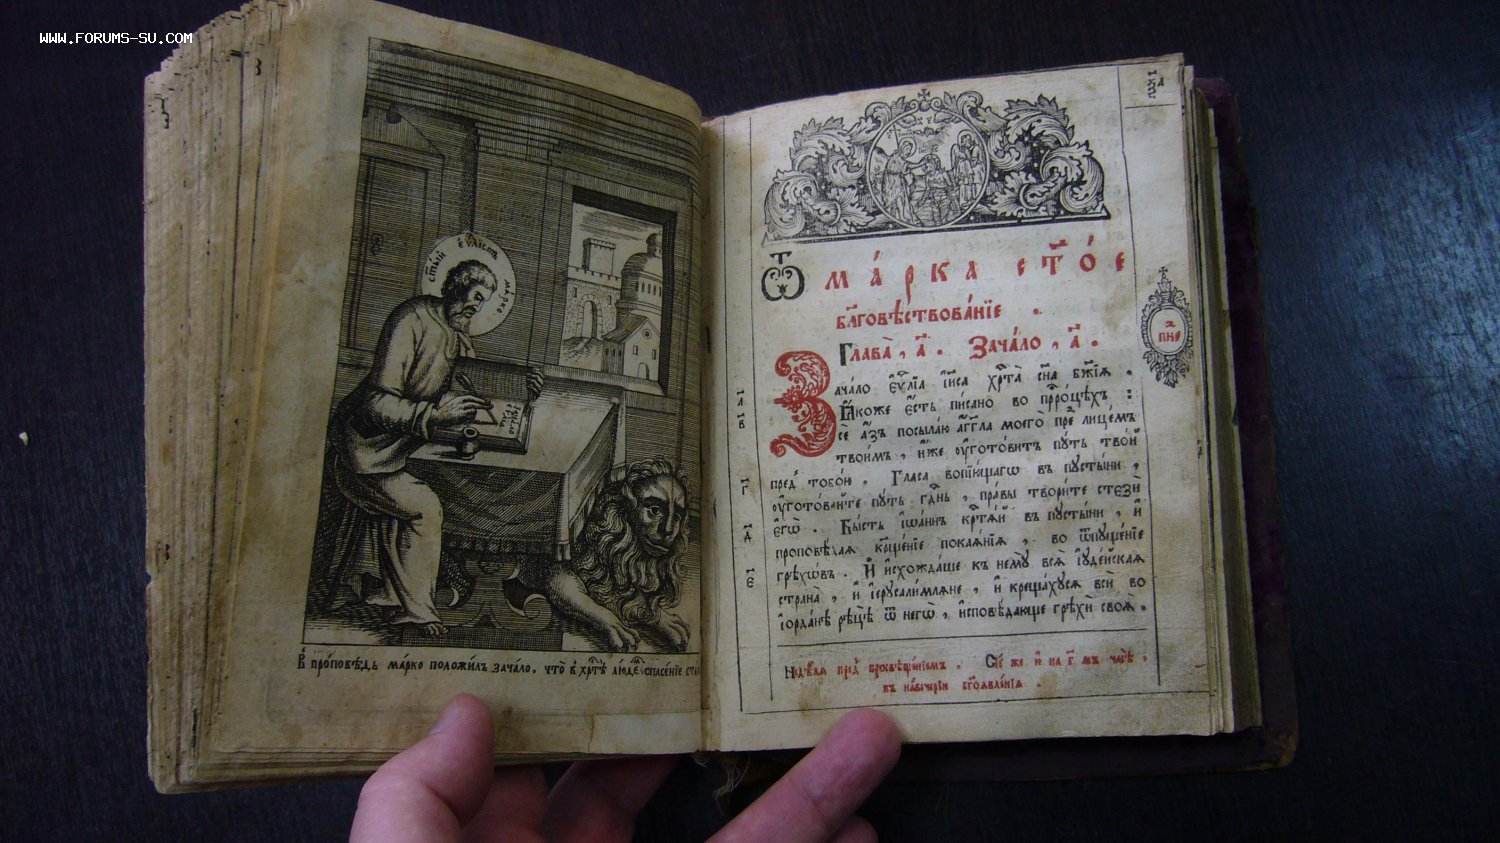 WWW.FORUMS-SU.COM
ст҃ый е҆ѵⷢ҇листъ марко
В̾ про́повѣдь ма́рко положи́лъ зача́ло, что̀ в̾ хрⷭ҇тѣ̀ лю́демъ спасе́нїе
Ѿ ма́рка ст҃о́е
бл҃говѣствова́нїе .
Глава̀, а҃. Зача́ло, а҃.
Зача́ло є҆ѵⷢ҇лїа і҆и҃са хрⷭ҇та̀ сн҃а бж҃їѧ .
ꙗ҆́коже є҆́сть пи́сано во прⷪ҇ро́цѣхъ :
сѐ а҆́зъ посыла́ю а҆́гг҃ла моего̀ пред̾ лице́мъ
твои́мъ , и҆́же ᲂу҆гото́витъ пꙋ́ть тво́й
пред̾ тобо́ю . Гла́съ вопїю́щагѡ въ пꙋсты́ни ,
ᲂу҆гото́вайте пꙋ́ть гдⷭ҇нь , пра́вы твори́те стезѝ
є҆гѡ̀ . Бы́сть і҆ѡа́ннъ крⷭ҇тѧ́й въ пꙋсты́ни , и҆
проповѣ́даѧ крⷳ҇ще́нїе покаѧ́нїѧ , во ѿпꙋще́нїе
грѣхѡ́въ . И҆ и҆схожда́ше къ немꙋ̀ всѧ̀ і҆ꙋде́йскаѧ
страна̀ , и҆ і҆ерусали́млѧне , и҆ креща́хꙋсѧ всѝ во
і҆ѻрда́нѣ рѣцѣ̀ ѿ негѡ̀ , и҆сповѣ́дающе грѣхѝ своѧ̀ .
Недѣ́лѧ пред̾ просвѣще́нїемъ . Сїе́ же и҆ на г҃ мъ часѣ̀ ,
въ наве́черїи бг҃оѧвле́нїѧ .
а҃
в҃
г҃
д҃
є҃